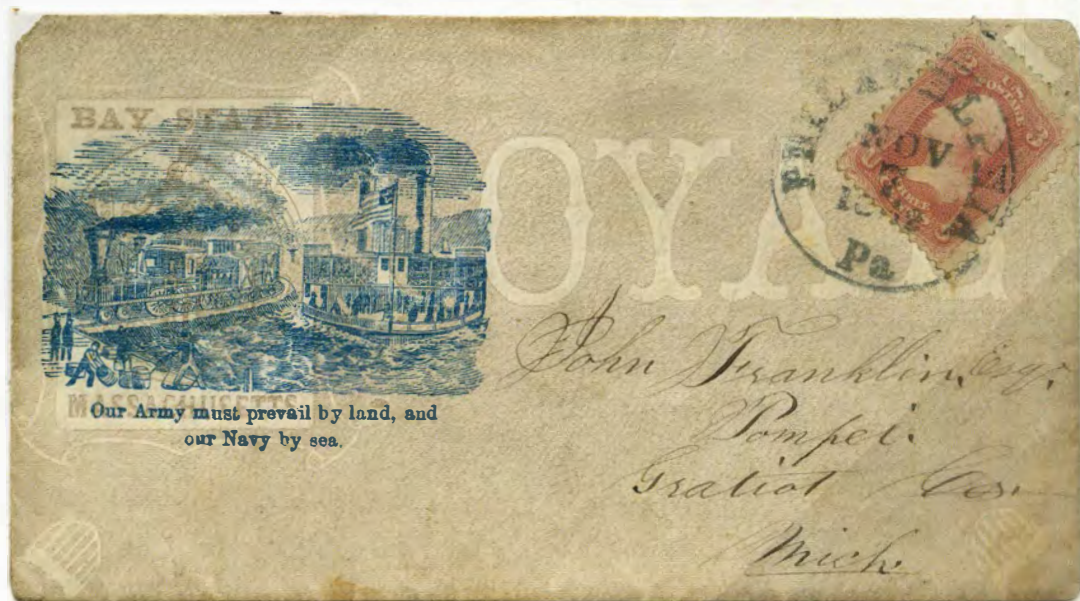 BAY STATE.
MASSACHUSETTS
Our Army must prevail by land, and
our Navy by sea.
OYAL
PHILADELPHIA
NOV
Pa
U.S. POSTAGE
3 3
John Franklin, Esqr.
Pompei.
Gratiot Co.
Mich.